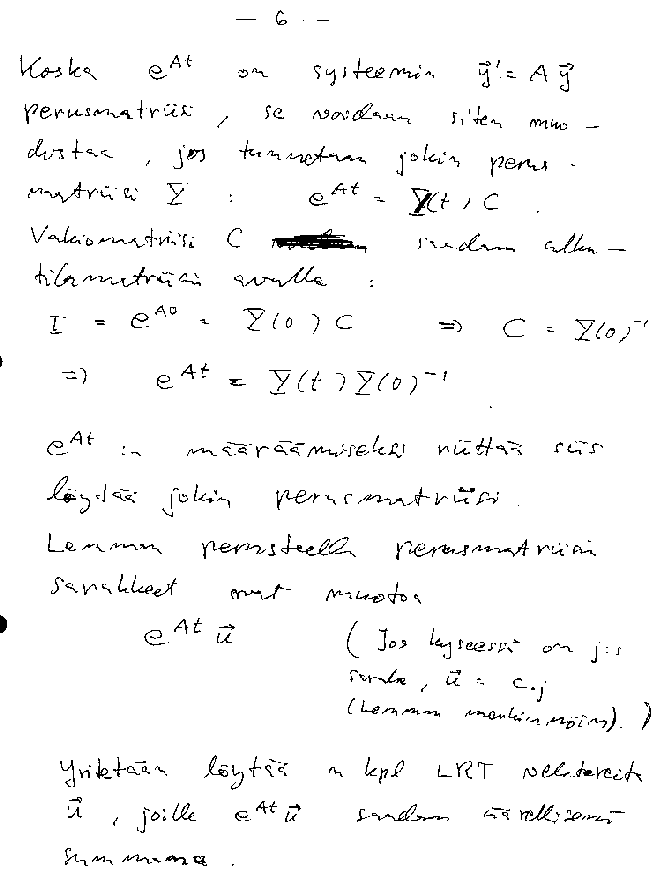 — 6 —
Koska e^{At} on systeemin y⃗' = A y⃗
perusmatriisi, se voidaan siten muo-
dostaa, jos tunnetaan jokin perus-
matriisi Y : e^{At} = Y(t) C.
Vakiomatriisi C saadaan alku-
tilamatriisin avulla :
I = e^{A0} = Y(0) C ⇒ C = Y(0)^{-1}
⇒ e^{At} = Y(t) Y(0)^{-1}
e^{At}:n määräämiseksi riittää siis
löytää jokin perusmatriisi.
Lemman perusteella perusmatriisin
sarakkeet ovat muotoa
e^{At} u⃗ (Jos kyseessä on j:s
sarake, u⃗ = c.j
(Lemman merkinnöin).)
Yritetään löytää n kpl LRT vektoreita
u⃗, joille e^{At} u⃗ saadaan äärellisenä
summana.